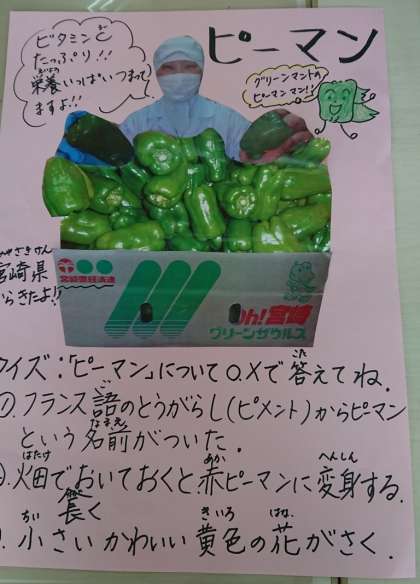 ピーマン
ビタミンど
たっぷり!!
栄養いっぱいつまって
ますよ!!
グリーンマントの
ピーマンマン!!
みやざきけん
宮崎県
からきたよ!!
Oh!宮崎
グリーンザウルス
クイズ:「ピーマン」について○.×で答えてね.
①.フランス語のとうがらし(ピメント)からピーマン
という名前がついた.
畑でおいておくと、赤ピーマンに変身する.
長く
小さいかわいい黄色の花がさく.